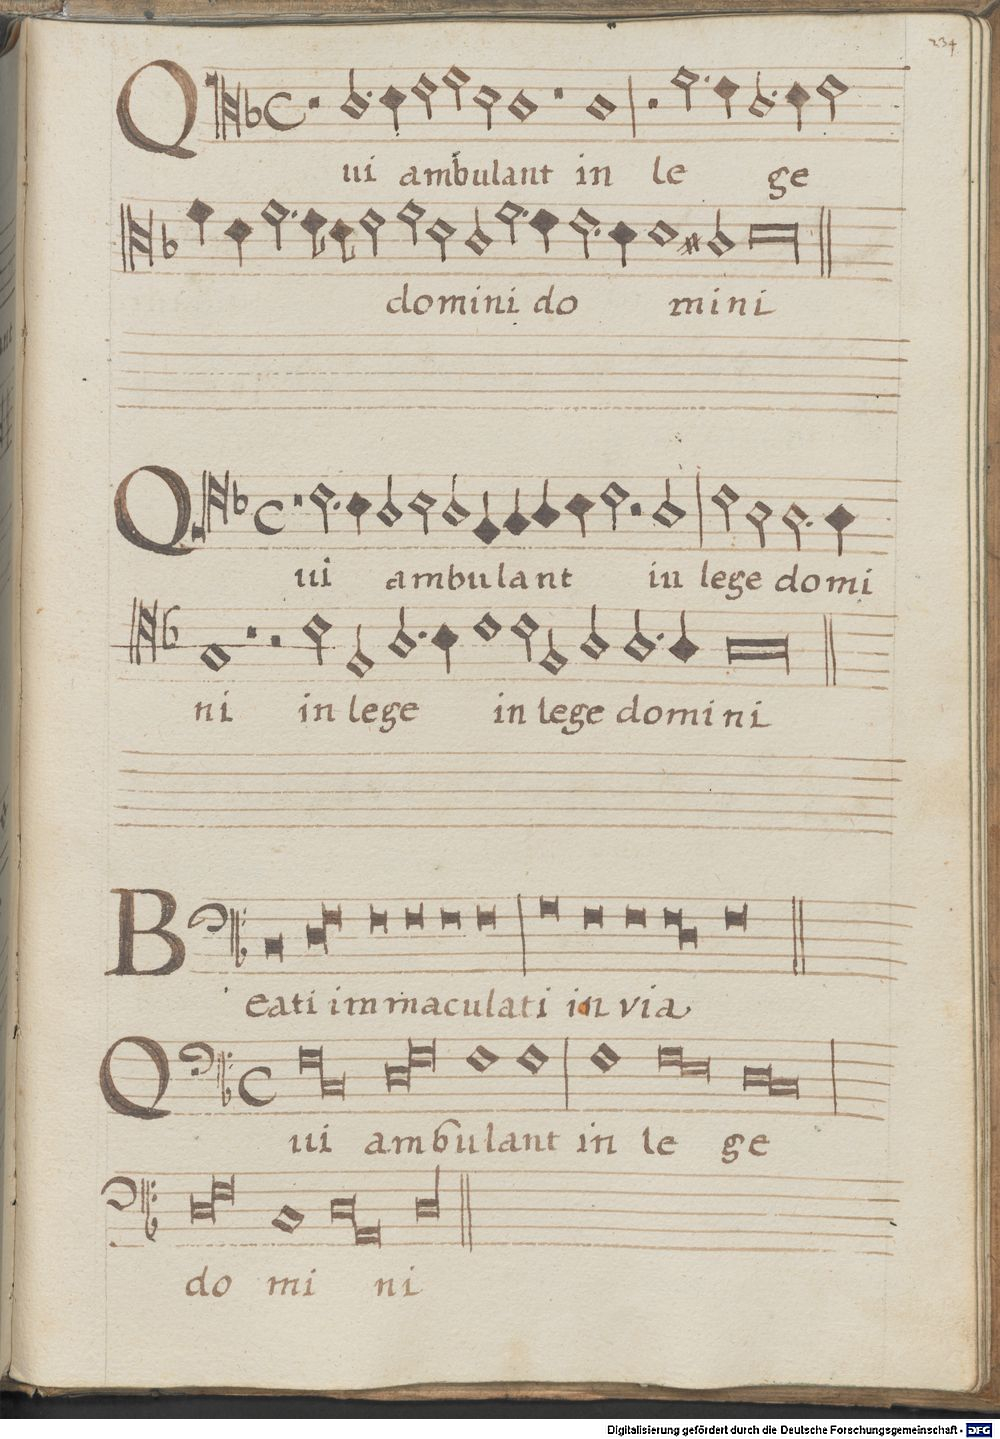 234
Qui ambulant in lege
domini domini
Qui ambulant in lege domi
ni in lege in lege domini
Beati immaculati in via
Qui ambulant in lege
domini
Digitalisierung gefördert durch die Deutsche Forschungsgemeinschaft - DFG